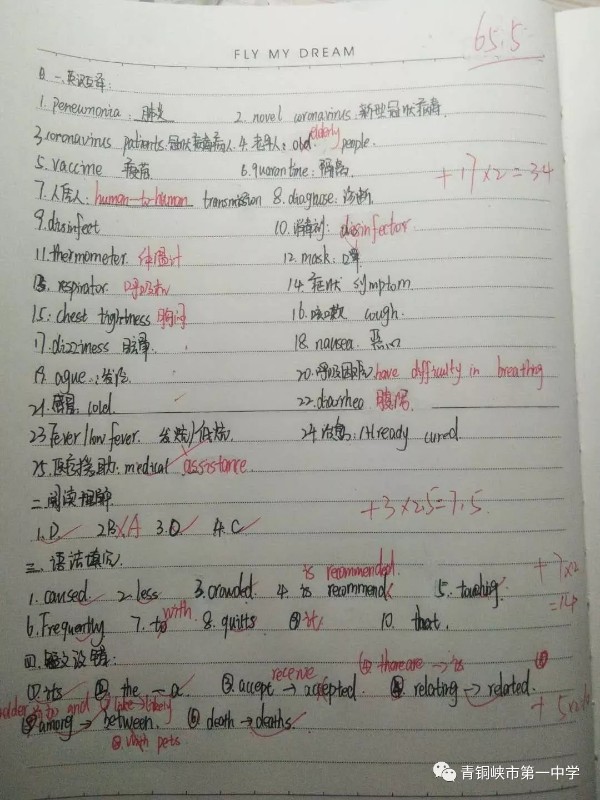 FLY MY DREAM
65.5
一、英汉互译:
1. peneumonia: 肺炎 2. novel coronavirus: 新型冠状病毒.
3. coronavirus patients: 冠状病毒病人 4. 老年人: old elderly people.
5. vaccine 疫苗 6. quarantine: 隔离
+17×2=34
7. 人传人: human-to-human transmission 8. diagnose: 诊断
9. disinfect 10. 消毒剂: disinfector
11. thermometer. 体温计 12. mask: 口罩
13. respirator. 呼吸机 14. 症状 symptom
15: chest tightness 胸闷 16. 咳嗽 cough.
17. dizziness 眩晕 18. nausea. 恶心
19. ague: 发冷 20. 呼吸困难 have difficulty in breathing
21. 感冒: cold. 22. diarrhea 腹泻.
23 Fever/low fever. 发烧/低烧 24. 治愈: Already cured.
25. 医疗援助: medical assistance.
二. 阅读理解
+3×2.5=7.5
1. D 2B A 3. D 4. C
三. 语法填空
is recommended.
+7×2=14
1. caused 2. less 3. crowded 4. is recommend 5. touching
6. Frequently 7. to with 8. quitts 9 it 10. that.
四. 短文改错:
receive
there are → is
① its ② the → a ③ accept → accepted. ④ relating → related.
and like → likely
⑤ among → between. ⑥ death → deaths.
with pets
青铜峡市第一中学